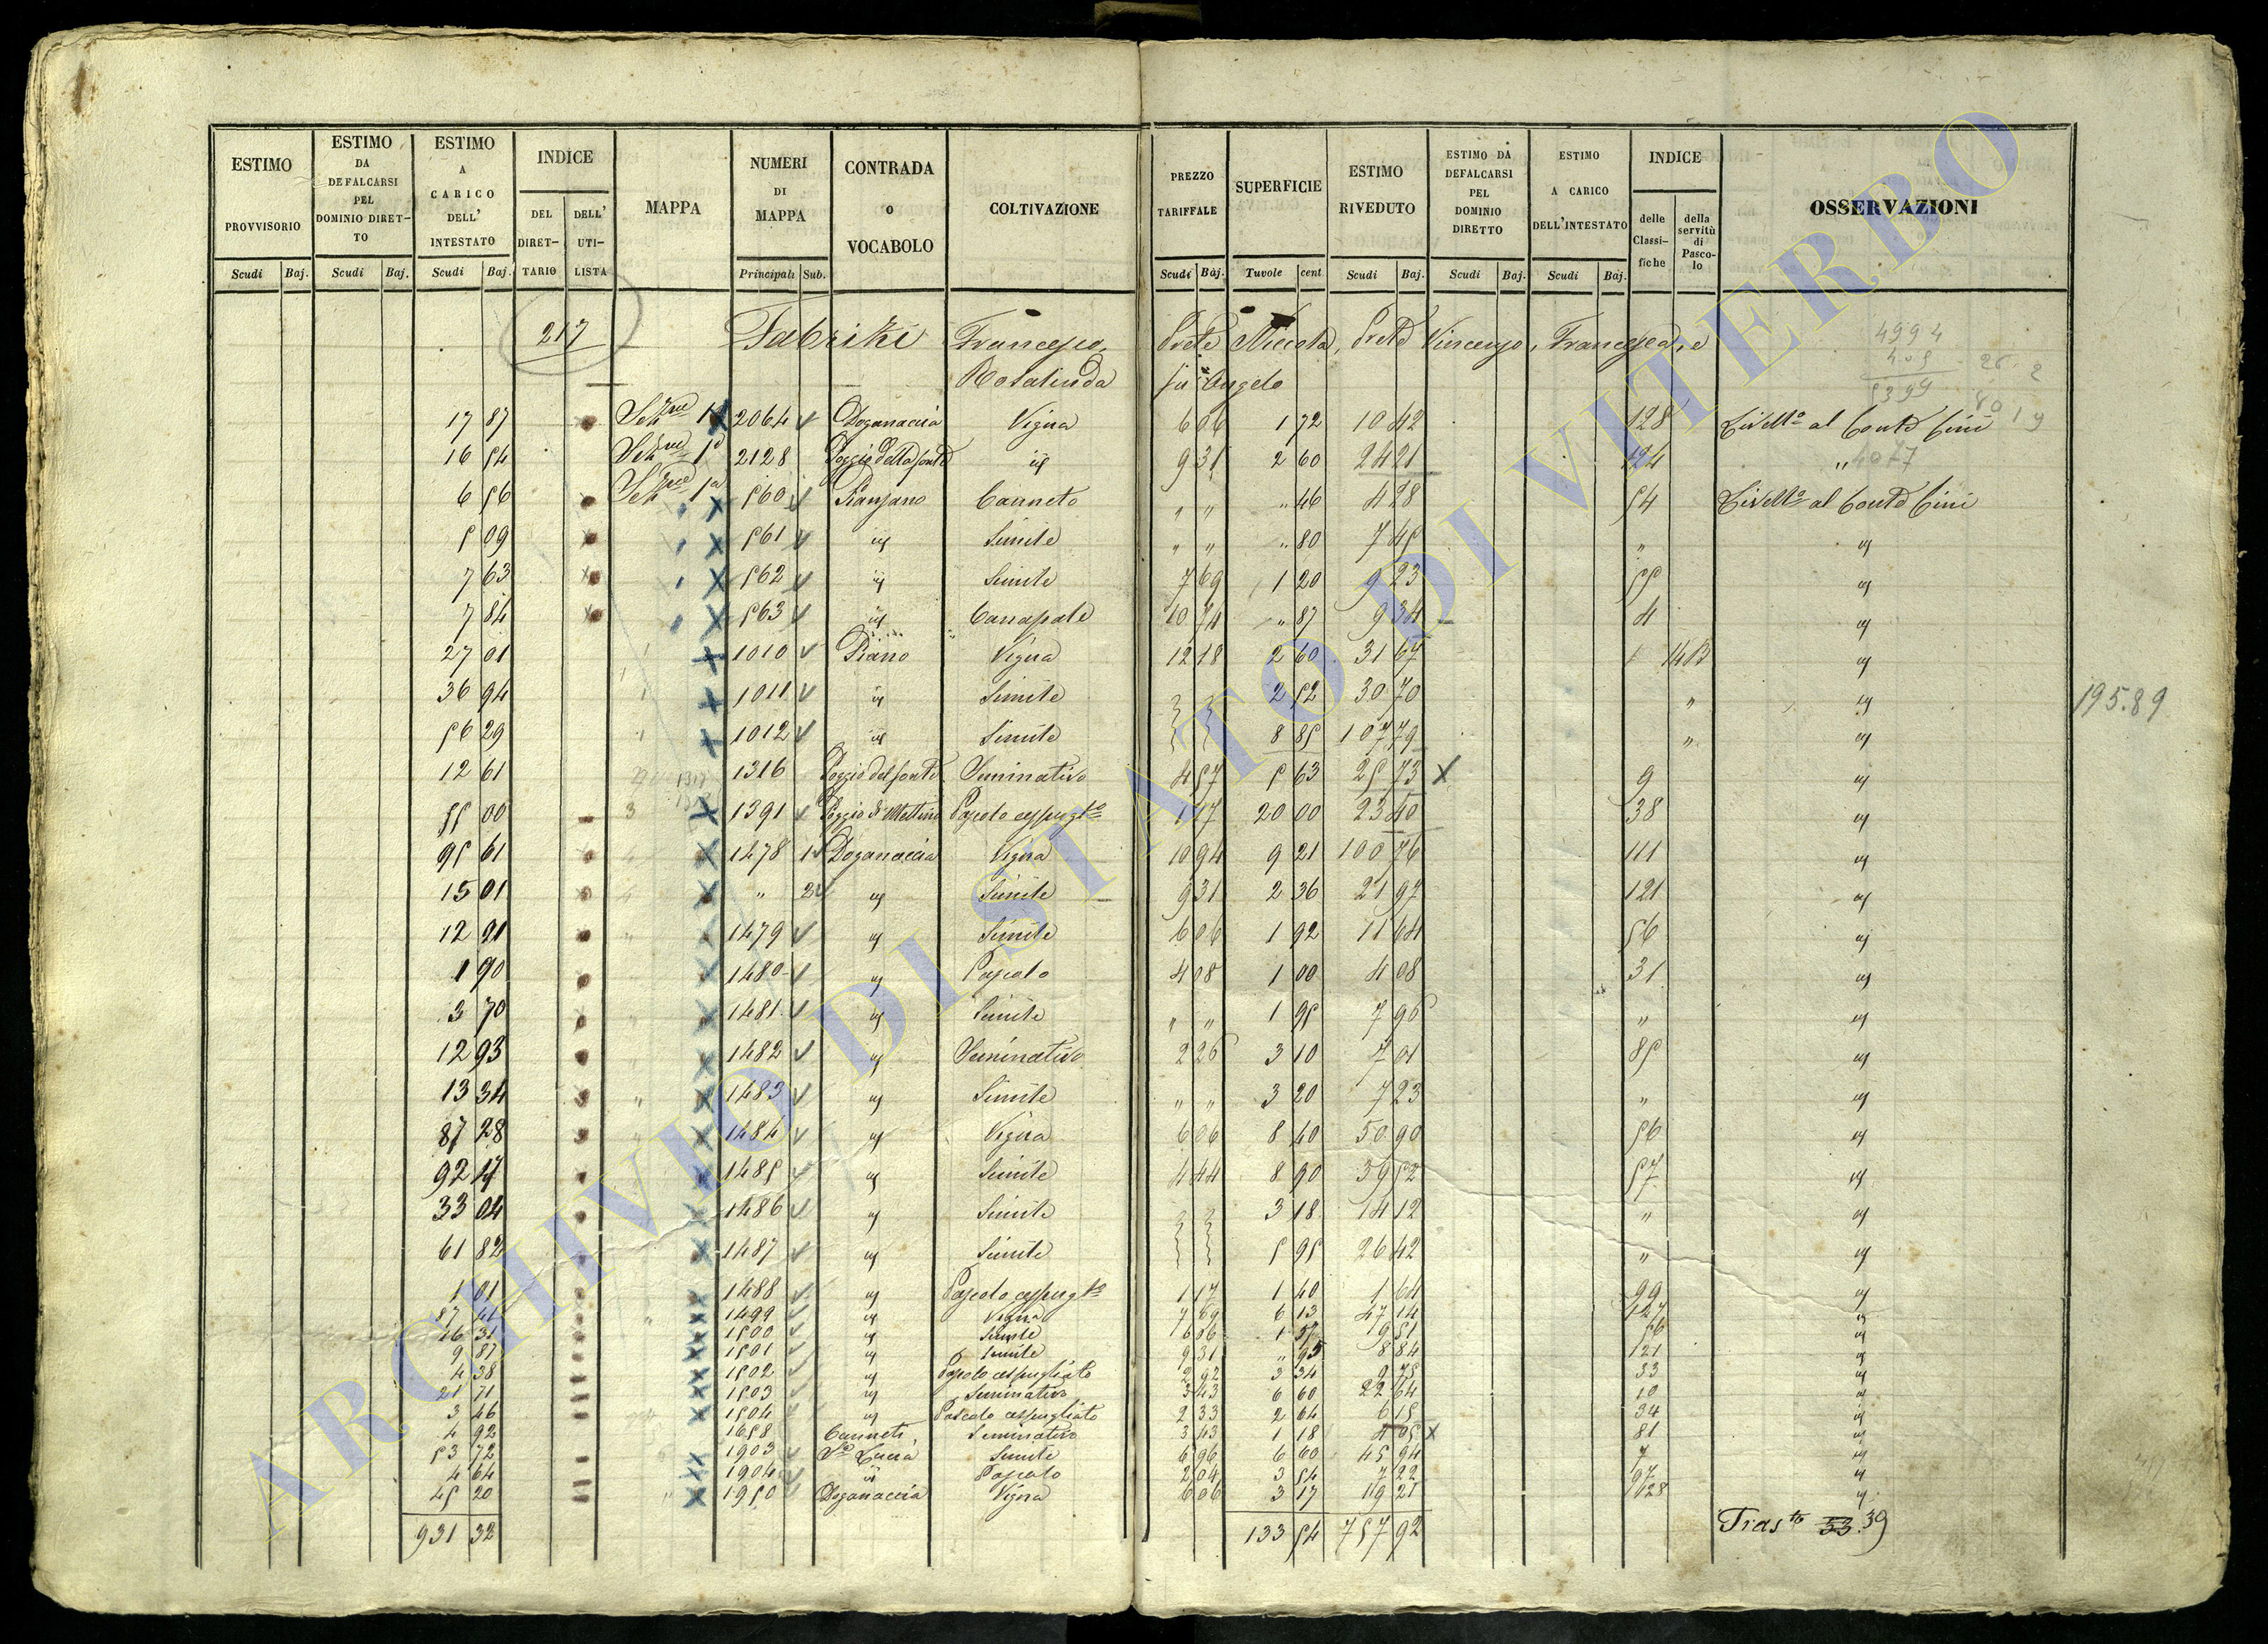 ESTIMO PROVVISORIO | ESTIMO DA DEFALCARSI PEL DOMINIO DIRETTO | ESTIMO A CARICO DELL' INTESTATO | INDICE DEL DIRETTARIO | DELL' UTILISTA | MAPPA | NUMERI DI MAPPA | CONTRADA O VOCABOLO | COLTIVAZIONE | PREZZO TARIFFALE | SUPERFICIE | ESTIMO RIVEDUTO | ESTIMO DA DEFALCARSI PEL DOMINIO DIRETTO | ESTIMO A CARICO DELL'INTESTATO | INDICE delle Classifiche | della servitù di Pascolo | OSSERVAZIONI
Scudi Baj. Scudi Baj. Scudi Baj. Principali Sub. Scudi Baj. Tavole cent Scudi Baj. Scudi Baj. Scudi Baj.
217 Fabrizi Francesco, Prete Niccola, Prete Vincenzo, Francesca, e
Rosalinda fu Angelo
4994
5399
17 87 2064 Doganaccia Vigna 6 06 1 72 10 42 128 Livello al Conte Cini
16 54 2128 Poggio della fonte 9 31 2 60 24 21 124
6 56 560 Pianzano Canneto " " " 46 4 28 54 Livello al Conte Cini
5 09 561 Simile " " " 80 7 45 "
7 63 562 Simile 7 69 1 20 9 23 55
7 84 563 Canapale 10 74 " 87 9 34 4
27 01 1010 Piano Vigna 12 18 2 60 31 67 14 B
36 94 1011 Simile 2 52 30 70 " 195.89
56 29 1012 Simile 8 85 107 79 "
12 61 1316 Poggio del fonte Seminativo 4 57 5 63 25 73 X 9
55 00 3 1391 Pascolo cespugto 1 17 20 00 23 40 38
95 61 1478 1 Doganaccia Vigna 10 94 9 21 100 76 111
15 01 " 2 Simile 9 31 2 36 21 97 121
12 21 1479 Simile 6 06 1 92 11 64 56
1 90 1480 Pascolo 4 08 1 00 4 08 31
3 70 1481 Simile " " 1 95 7 96 "
12 93 1482 Seminativo 2 26 3 10 7 01 85
13 34 1483 Simile " " 3 20 7 23 "
87 28 1484 Vigna 6 06 8 40 50 90 56
92 47 1485 Simile 4 44 8 90 39 52 57
33 04 1486 Simile 3 18 14 12 "
61 82 1487 Simile 5 95 26 42 "
1 01 1488 Pascolo cespugto 1 17 1 40 1 64 99
87 1499 Vigna 7 69 6 13 47 14 127
16 31 1500 Simile 6 06 1 57 9 51 56
9 87 1501 Simile 9 31 " 95 8 84 121
4 38 1502 Pascolo cespugliato 2 92 3 34 9 75 33
21 71 1503 Seminativo 3 43 6 60 22 64 10
3 46 1504 Pascolo cespugliato 2 33 2 64 6 15 34
4 92 1658 Canneti Seminativo 3 43 1 18 4 05 X 81
53 72 1903 Sa Lucia Simile 6 96 6 60 45 94 7
4 64 1904 Pascolo 2 04 3 54 7 22 97
45 20 1950 Doganaccia Vigna 6 06 3 17 19 21 128
931 32 133 54 757 92 Trasto 53.39
ARCHIVIO DI STATO DI VITERBO